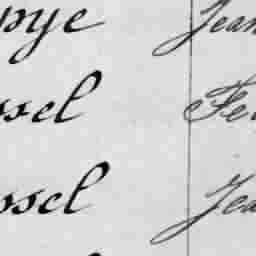 pye Jean
ssel Fe
ssel Jea